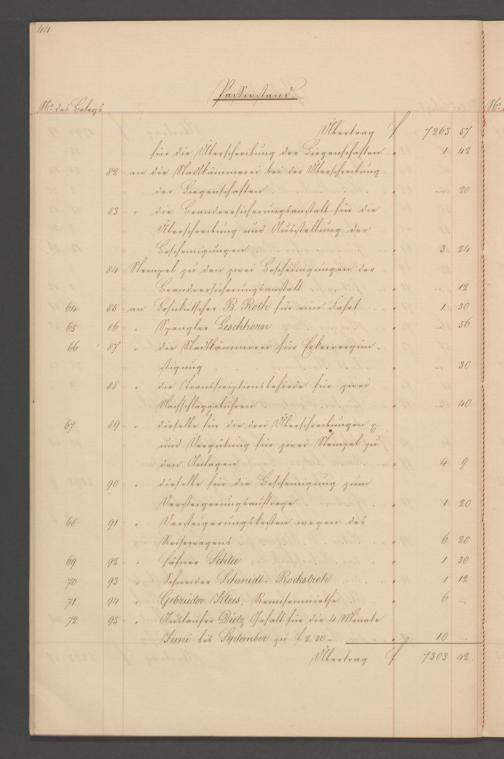 44
Passivstand
No. des Belegs
Übertrag f 7263 57
für die Überschreibung der Liegenschaften " 1 42
82 an die Stadtkämmerei bei der Überschreibung
der Liegenschaften " " 20
83 " die Brandversicherungsanstalt für die
Überschreibung und Ausstellung der
Bescheinigungen " 3 24
84 Stempel zu den zwei Bescheinigungen der
Brandversicherungsanstalt " " 12
64 85 an Lohnkutscher B. Roth für eine Fahrt " 1 30
65 86 " Spengler Leichhenn " " 56
66 87 " die Stadtkämmerei für
" " 30
88 " die Transscriptionsbehörde für zwei
Nachschlaggebühren " " 40
67 89 " dieselbe für die drei Überschreibungen
und Vergütung für zwei Stempel zu
den Anlagen " 4 9
90 " dieselbe für die Bescheinigung zum
" 1 20
68 91 " Versteigerungskosten wegen des
Reisewagens " 6 20
69 92 " " 1 30
70 93 " Schneider Schmidt-Rockstroh " 1 12
71 94 " Gebrüder Kloss, Remisenmiethe " 6 -
72 95 " Ausläufer Dietz Gehalt für die 4 Monate
Juni bis September zu f 2.30 " 10 -
Übertrag f 7303 42